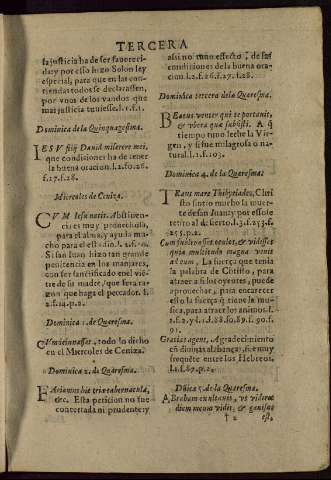 TERCERA
la justicia ha de ser fauoreci-
da: y por esso hizo Solon ley
especial, para que en las con-
tiendas todos se declarassen,
por vnos de los vandos que
mas justicia tuuiesse. l.1.f.1.
Dominica de la Quinquagesima.
IESV fili Dauid miserere mei,
que condiciones ha de tener
la buena oracion. l.2. f.26.
f.27. f.28.
Miercoles de Ceniza.
CVM Ieiunatis. Abstinen-
cia es muy prouechosa,
para el alma, y ayuda mu-
cho para el estudio. l.2. f.10.
Si san Iuan hizo tan grande
penitencia en los manjares,
con ser santificado en el vië-
tre de su madre, que sera ra-
zon que haga el pecador. l.
2. f.14. p.2.
Dominica 1. de Quaresma.
CVm ieiunasset, todo lo dicho
en el Miercoles de Ceniza.
Dominica 2. de Quaresma.
FAciamus hic tria tabernacula,
&c. Esta peticion no fue
concertada ni prudente: y
assi no tuuo effecto; de sus
condiciones de la buena ora-
cion. l.2. f.26. f.27. f.28.
Dominica tercera de la Quaresma.
BEatus venter qui te portauit,
& vbera quæ suxisti. A q̃
tiempo tuuo leche la Vir-
gen, y si fue milagrosa o na-
tural. l.1. f.103.
Dominica 4. de la Quaresma.
TRans mare Thibyriades, Chri
sto sintio mucho la muer-
te de san Iuan: y por esso se
retiro al desierto. l.3. f.253. f.
255. p.2.
Cum subleuasset oculos, & vidisset
quia multitudo magna venit
ad eum. La fuerça que tenia
la palabra de Christo, para
atraer a si los oyentes, puede
prouechar, para encarecer
esto la fuerça q̃ tiene la mu-
sica, para atraer los animos. f.
Gracias agent, Agradecimiento
en diuinas alabanças, fue muy
frequẽte entre los Hebreos.
l.1. f.87. p.2.
Dñica 5. de la Quaresma.
ABraham exultauit, vt videret
diem meum vidit, & gauisus
† 2 est,